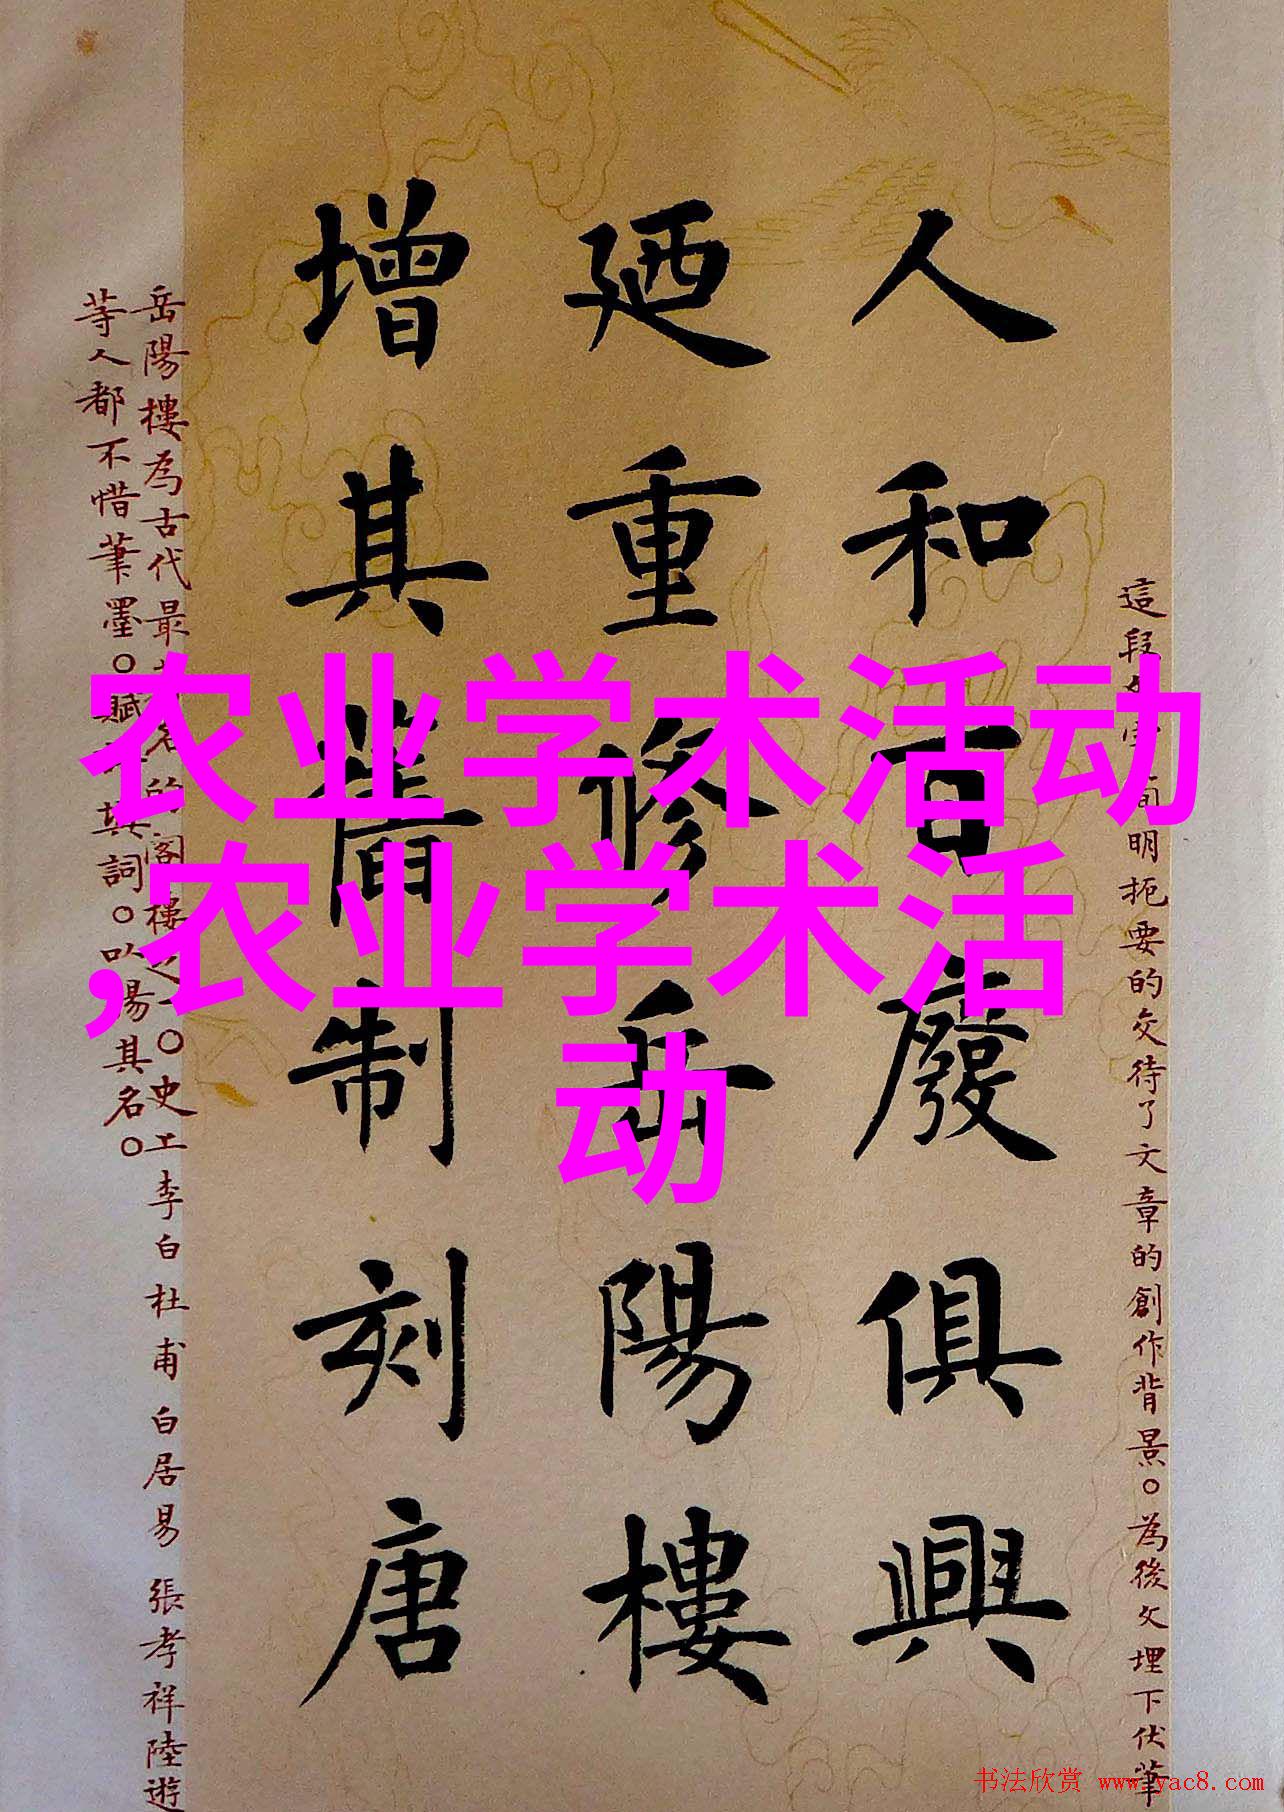 农业学术活动
,农业学术活
动
這段明扼要的交待了文章的創作背景。為後文埋下伏筆
人和百廢俱興
廼重修岳陽樓
增其舊制刻唐
岳陽樓為古代最名的閣樓之一。史上李白杜甫白居易張孝祥陸遊
等人都不惜筆墨。賦其詞。以揚其名。
书法欣赏 www.yac8.com